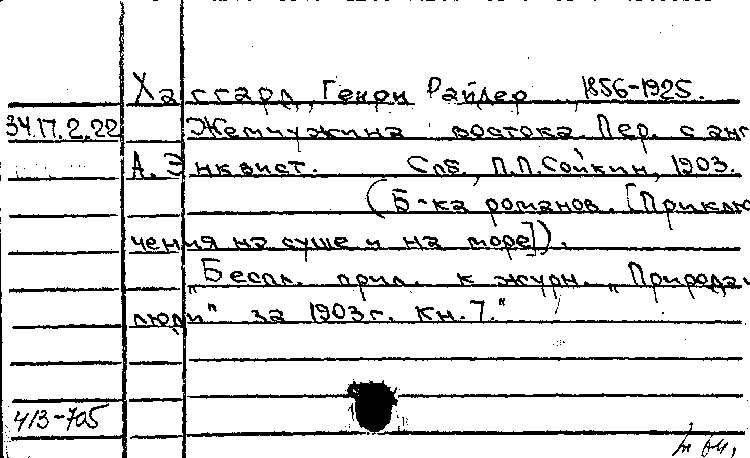 Хаггард, Генри Райдер, 1856-1925.
34.17.2.22 Жемчужина востока. Пер. с анг
А. Энквист. Спб., П.П.Сойкин, 1903.
(Б-ка романов. [Приклю
чения на суше и на море]).
„Беспл. прил. к журн. „Природа
люди" за 1903 г. Кн. 7."
413-705